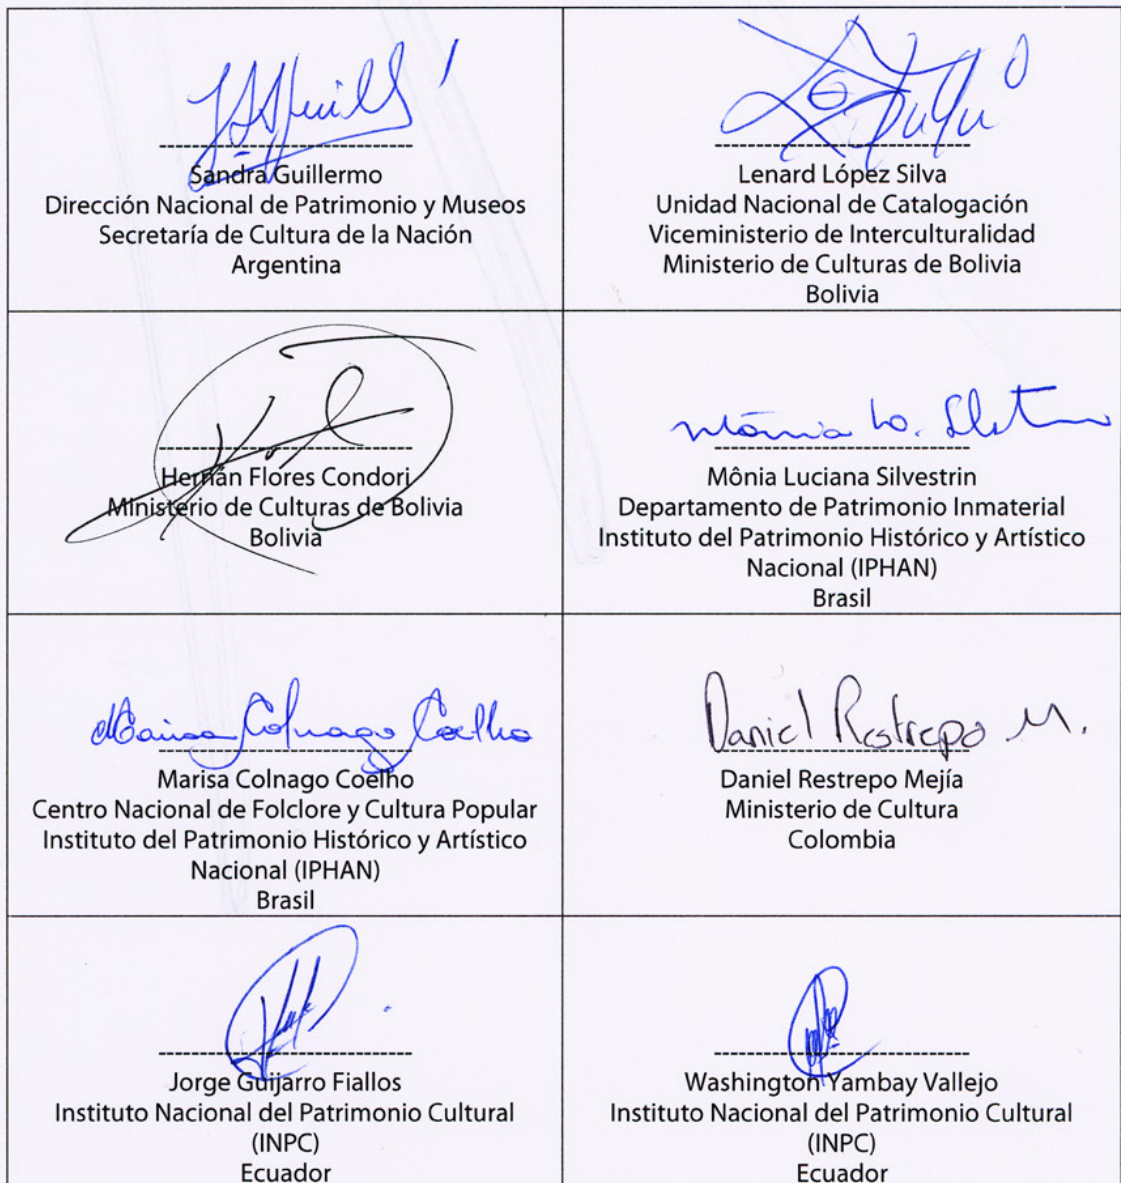 Sandra Guillermo
Dirección Nacional de Patrimonio y Museos
Secretaría de Cultura de la Nación
Argentina
Lenard López Silva
Unidad Nacional de Catalogación
Viceministerio de Interculturalidad
Ministerio de Culturas de Bolivia
Bolivia
Hernán Flores Condori
Ministerio de Culturas de Bolivia
Bolivia
Mônia Luciana Silvestrin
Departamento de Patrimonio Inmaterial
Instituto del Patrimonio Histórico y Artístico
Nacional (IPHAN)
Brasil
Marisa Colnago Coelho
Marisa Colnago Coelho
Centro Nacional de Folclore y Cultura Popular
Instituto del Patrimonio Histórico y Artístico
Nacional (IPHAN)
Brasil
Daniel Restrepo M.
Daniel Restrepo Mejía
Ministerio de Cultura
Colombia
Jorge Guijarro Fiallos
Instituto Nacional del Patrimonio Cultural
(INPC)
Ecuador
Washington Yambay Vallejo
Instituto Nacional del Patrimonio Cultural
(INPC)
Ecuador